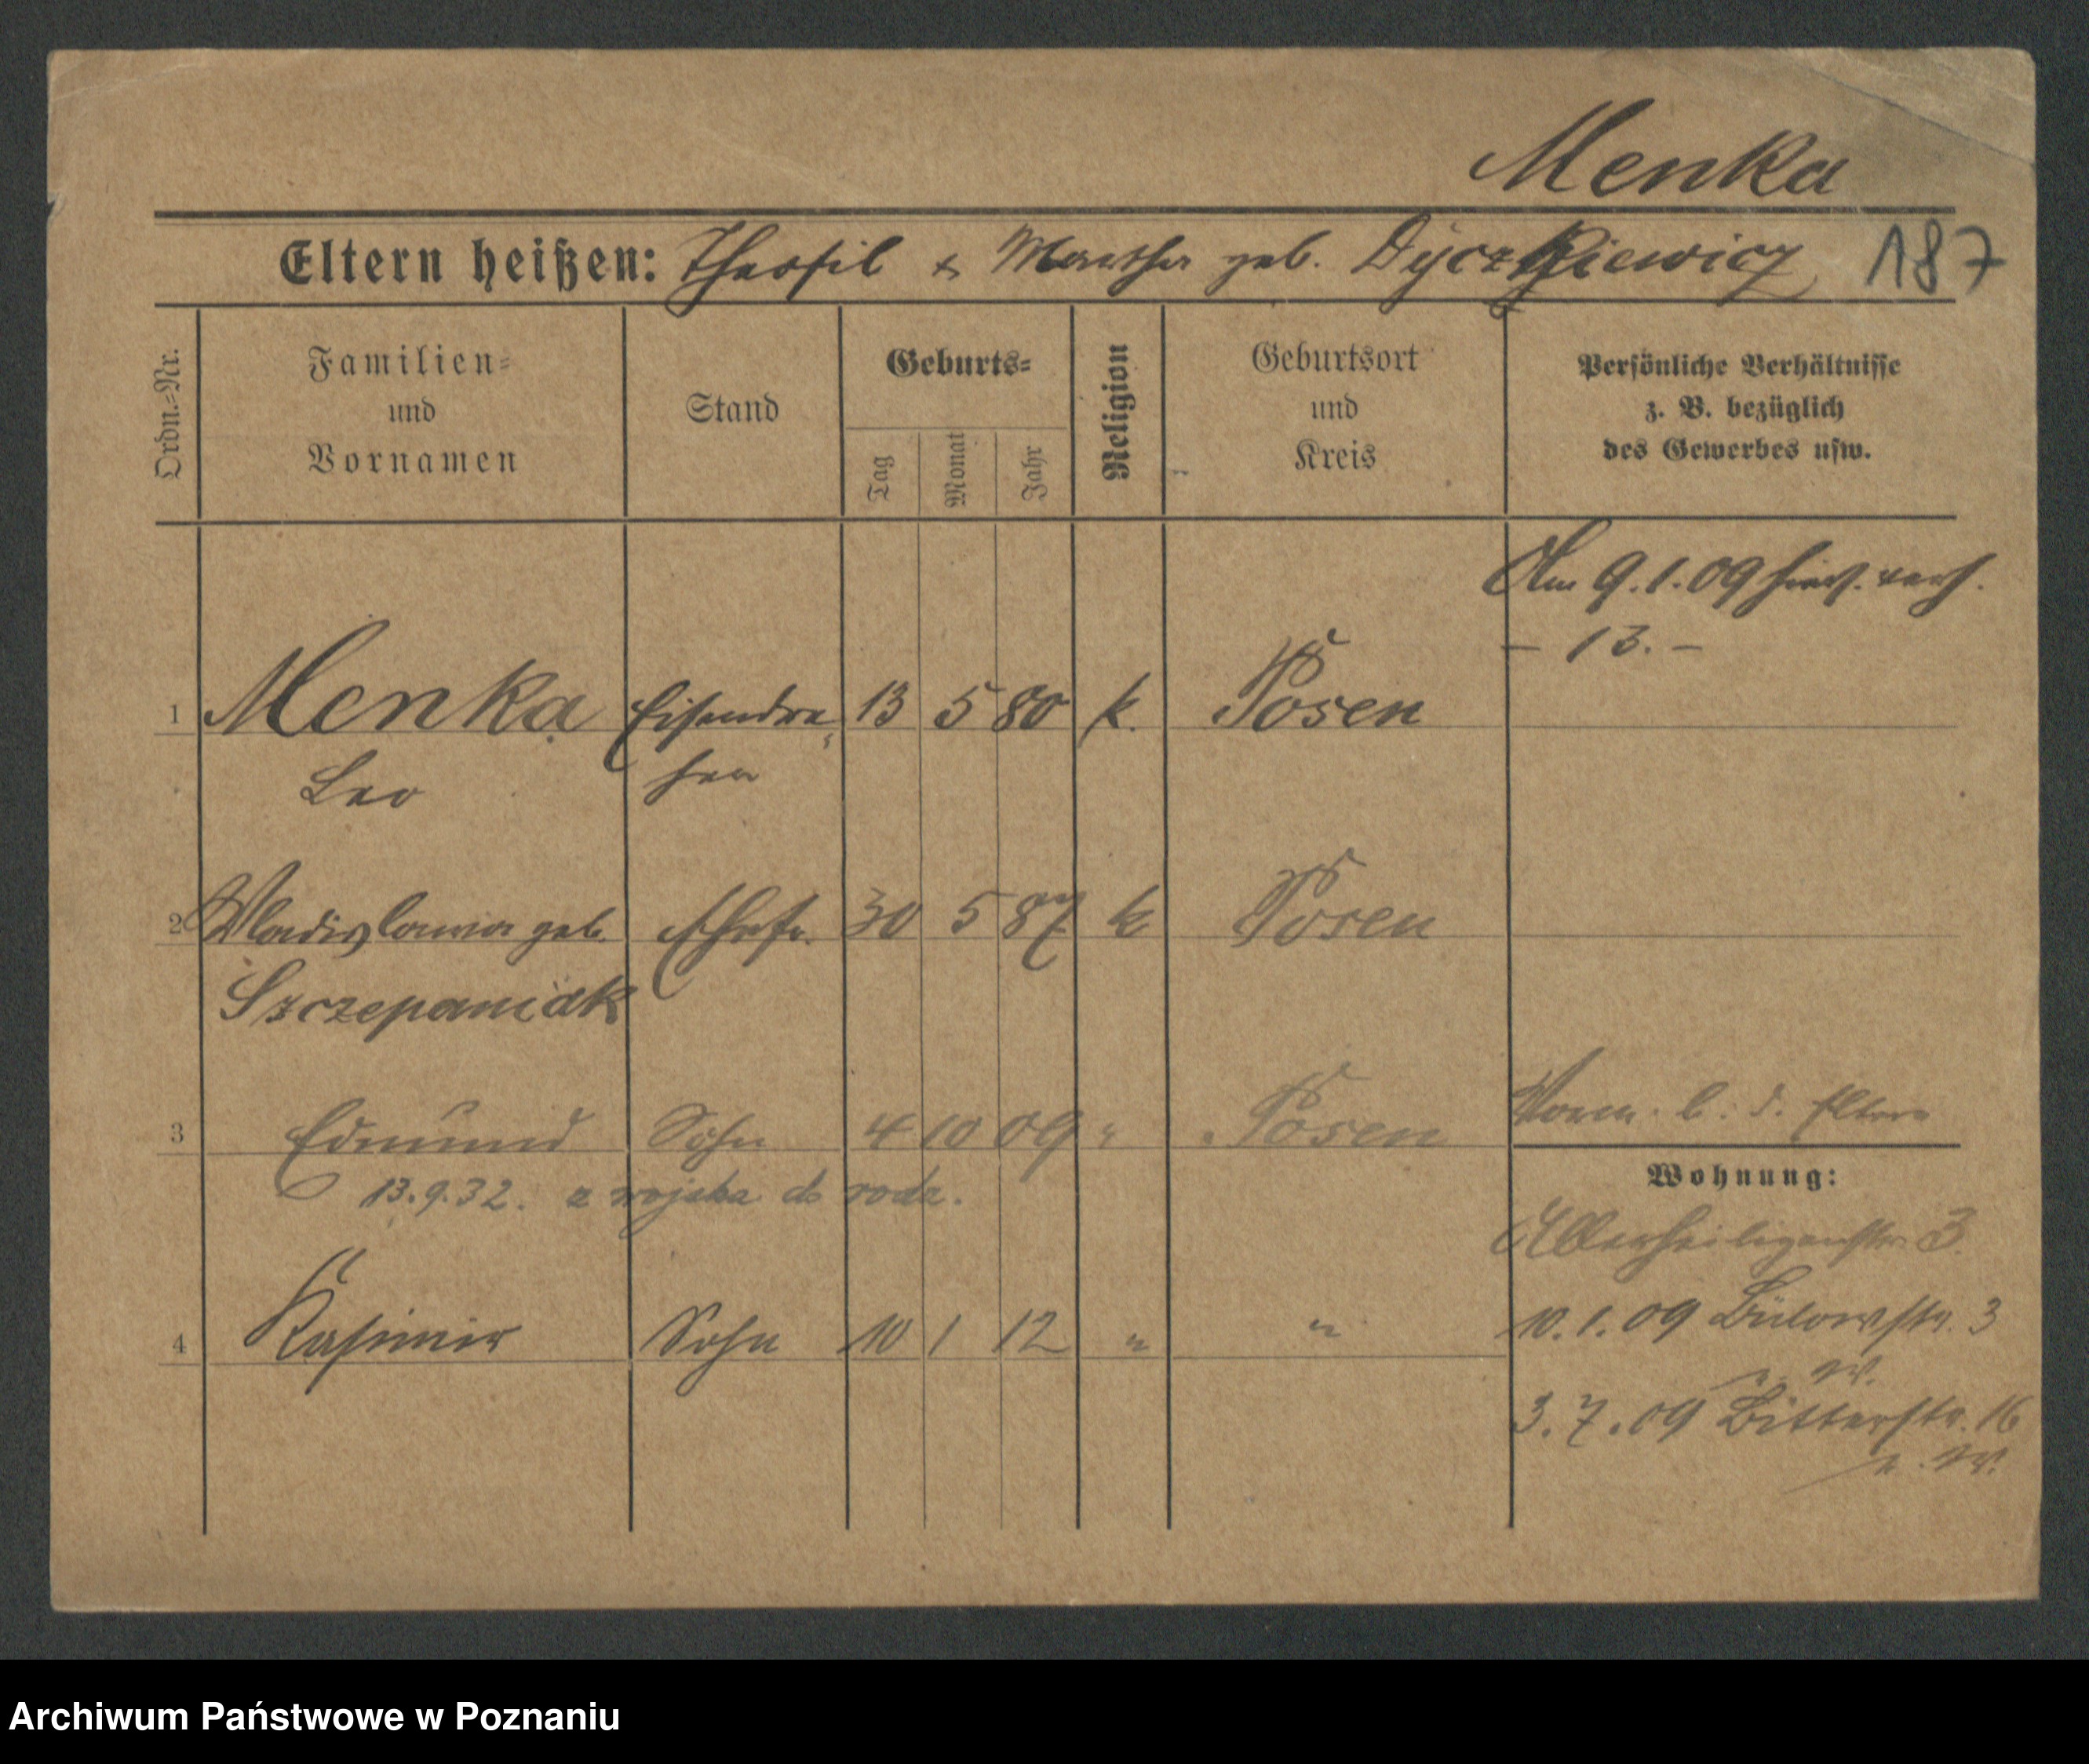 Menka
Eltern heißen: Theofil & Martha geb. Dyczkiewicz 187
Ordn.=Nr.
Familien=
und
Vornamen
Stand
Geburts=
Tag Monat Jahr
Religion
Geburtsort
und
Kreis
Persönliche Verhältnisse
z. B. bezüglich
des Gewerbes usw.
Am 9.1.09 hier verh.
– 13. –
1 Menka Eisendre 13 5 80 k. Posen
Leo her
2 Wladislawa geb. Ehefr. 30 5 87 k Posen
Szczepaniak
3 Edmund Sohn 4 10 09 " Posen b. d. Eltern
13.9.32. z wojska do rodz.
Wohnung:
Allerheiligenstr. 3.
4 Kasimir Sohn 10 1 12 " "
10.1.09 Bülowstr. 3
n. W.
3.7.09 Bitterstr. 16
n. W.
Archiwum Państwowe w Poznaniu